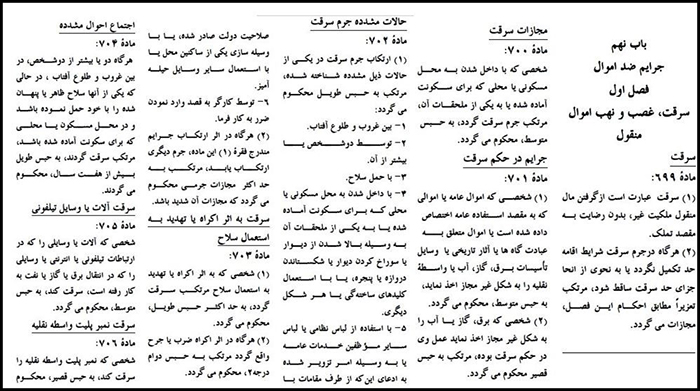 باب نهم
جرایم ضد اموال
فصل اول
سرقت، غصب و نهب اموال
منقول
سرقت
مادهٔ ۶۹۹:
(۱) سرقت عبارت است ازگرفتن مال
منقول ملکیت غیر، بدون رضایت به
مقصد تملک.
(۲) هرگاه درجرم سرقت شرایط اقامه
حد تکمیل نگردد یا به نحوی از انحا
جزای حد سرقت ساقط شود، مرتکب
تعزیراً مطابق احکام این فصل،
مجازات می گردد.
مجازات سرقت
مادهٔ ۷۰۰:
شخصی که با داخل شدن به محل
مسکونی یا محلی که برای سکونت
آماده شده یا به یکی از ملحقات آن،
مرتکب جرم سرقت گردد، به حبس
متوسط، محکوم می گردد.
جرایم در حکم سرقت
مادهٔ ۷۰۱:
(۱) شخصی که اموال عامه یا اموالی
که به مقصد استفاده عامه اختصاص
داده شده است یا اموال متعلق به
عبادت گاه ها یا آثار تاریخی یا وسایل
تأسیسات برق، گاز، آب یا واسطهٔ
نقلیه را به شکل غیر مجاز اخذ نماید،
به حبس متوسط، محکوم می گردد.
(۲) شخصی که برق، گاز یا آب را
به شکل غیر مجاز اخذ نماید عمل وی
در حکم سرقت بوده، مرتکب به حبس
قصیر محکوم می گردد.
حالات مشدده جرم سرقت
مادهٔ ۷۰۲:
(۱) ارتکاب جرم سرقت در یکی از
حالات ذیل مشدده شناخته شده،
مرتکب به حبس طویل محکوم
می گردد:
۱- بین غروب و طلوع آفتاب.
۲- توسط دوشخص یا
بیشتر از آن.
۳- با حمل سلاح.
۴- با داخل شدن به محل مسکونی یا
محلی که برای سکونت آماده
شده یا به یکی از ملحقات آن
به وسیله بالا شدن از دیوار
یا سوراخ کردن یا شکستاندن
دروازه یا پنجره، یا با استعمال
کلیدهای ساختگی یا هر شکل
دیگری.
۵- با استفاده از لباس نظامی یا لباس
سایر مؤظفین خدمات عامه
یا به وسیله امر تزویر شده
به ادعای این که از طرف مقامات با
صلاحیت دولت صادر شده، یا با
وسیله سازی یکی از ساکنین محل یا
با استعمال سایر وسایل حیله
آمیز.
۶- توسط کارگر به قصد وارد نمودن
ضرر به کار فرما.
(۲) هرگاه در اثر ارتکاب جرایم
مندرج فقرهٔ (۱) این ماده، جرم دیگری
ارتکاب یابد، مرتکب به
حد اکثر مجازات جرمی محکوم
می گردد که مجازات آن شدید باشد.
سرقت به اثر اکراه یا تهدید به
استعمال سلاح
مادهٔ ۷۰۳:
(۱) شخصی که به اثر اکراه یا تهدید
به استعمال سلاح مرتکب سرقت
گردد، به حد اکثر حبس طویل،
محکوم می گردد.
(۲) هرگاه در اثر اکراه ضرب یا جرح
واقع گردد مرتکب به حبس دوام
درجه۲، محکوم می گردد.
اجتماع احوال مشدده
مادهٔ ۷۰۴:
هرگاه دو یا بیشتر از دوشخص، در
بین غروب و طلوع آفتاب ، در حالی
که یکی از آنها سلاح ظاهر یا پنهان
شده را با خود حمل نموده باشد
و در محل مسکون یا محلی
که برای سکونت آماده شده باشد،
مرتکب سرقت گردند، به حبس طویل
بیش از هفت سال، محکوم
می گردند.
سرقت آلات یا وسایل تیلفونی
مادهٔ ۷۰۵:
شخصی که آلات یا وسایلی را که در
ارتباطات تیلفونی یا انترنتی یا وسایلی
را که در انتقال برق یا گاز یا نفت به
کار رفته است، سرقت کند، به حبس
متوسط، محکوم می گردد.
سرقت نمبر پلیت واسطه نقلیه
مادهٔ ۷۰۶:
شخصی که نمبر پلیت واسطه نقلیه را
سرقت کند، به حبس قصیر، محکوم